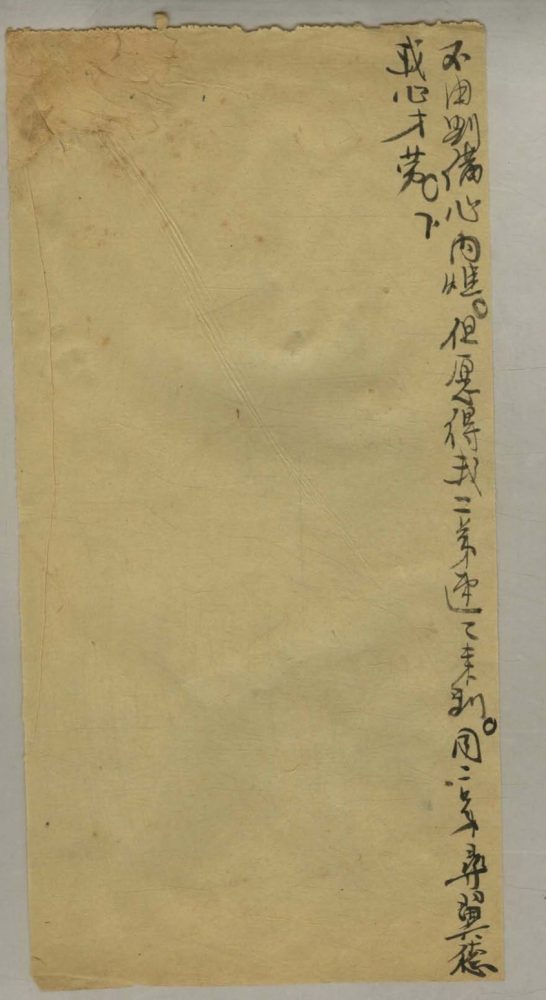 不由刘備心内焦。但愿得我二弟速々来到。同二弟弃翼德
我心才劳。下